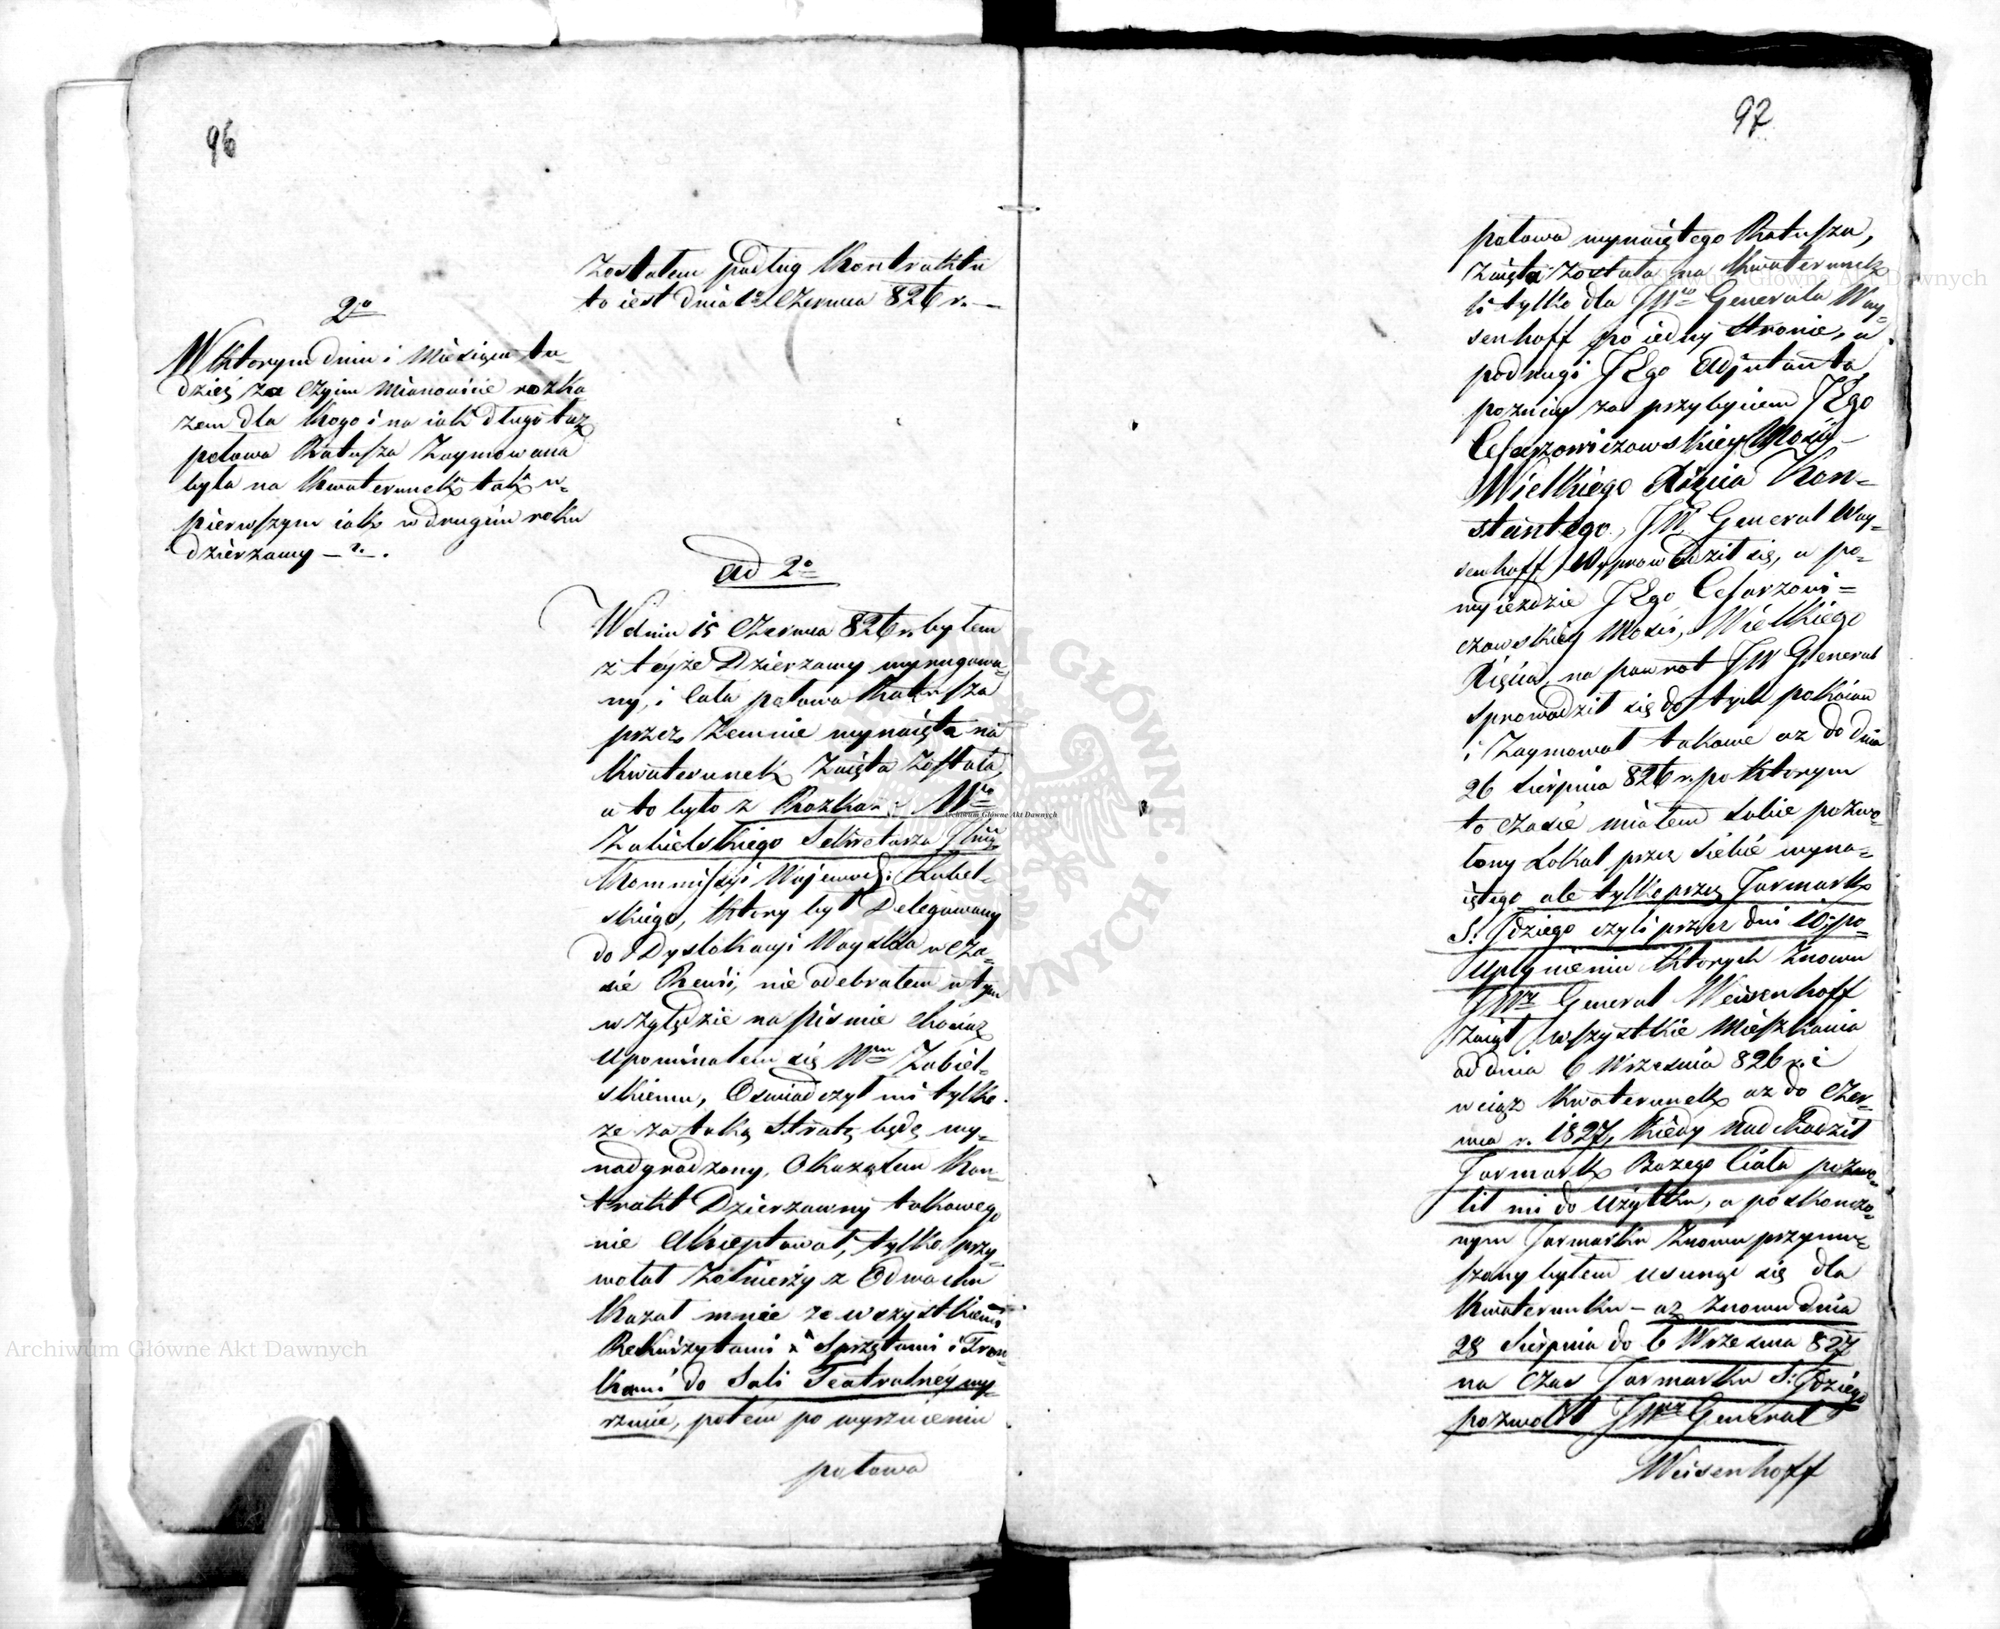 96
zostałem podług Kontraktu
to iest dnia 1o Czerwca 826 r. —
2o
W ktorym dniu i Miesiącu tu-
dzież za czyim Mianowicie rozka
zem dla kogo i na iak długo taż
połowa Ratusza Zaymowana
była na kwaterunek tak w
pierwszym iak w drugim roku
dzierzawy — ? —
ad 2o
W dniu 15 Czerwca 826 r. byłem
z teyże Dzierzawy wyrugowa-
ny, i cała połowa Ratusza
przez Zemnie wynaięta na
kwaterunek Zaięta Została,
a to było z Rozkazu Wo
Zabielskiego Sekretarza
Kommissyi Wojewodz: Lubel-
skiego, ktory był Delegowany
do Dyslokacyi Woyska w cza-
sie Rewii, nie odebrałem w tym
względzie na piśmie chociaż
upominałem się Wmu Zabiel-
skiemu, Oswiadczył mi tylko
ze za taką Stratę będę wy-
nadgrodzony, Okazałem Kon-
trakt Dzierzawny takowego
nie Akceptował, tylko przy-
wołał Żołnierzy z Odwachu
kazał mnie ze wszystkiemi
Rekwizytami i Sprzętami i Trun-
kami do Sali Teatralnéy wy-
rzucić, potem po wyrzuceniu
połowa
97
połowa wynaiętego Ratusza,
Zaięta Została na kwaterunek
li tylko dla JWo Generała Way-
senhoff po iedny stronie, a
podrugi JEgo Adjutanta
pozniey za przybyciem JEgo
Cesarzowiczowskiey Mości
Wielkiego Xięcia Kon-
stantego, JW. Generał Way-
senhoff Wyprowadził się, a po-
wyieździe JEgo Cesarzowi-
czowskiey Mości, Wielkiego
Xięcia, na powrot JW Generał
sprowadził się do tych pokoiow
i Zaymował takowe az do dnia
26 Sierpnia 826 r. po ktorym
to czasie miałem sobie pozwo-
lony Lokal przez siebie wyna-
iętego ale tylko przez Jarmark
S. Idziego czyli przez dni 10, po
Upłynieniu ktorych Znowu
JWy Generał Weisenhoff
Zaiął wszystkie Mieszkania
od dnia 6 Wrzesnia 826 r. i
wciąż kwaterunek az do Czer-
wca r. 1827, kiedy nadchodził
Jarmark Bożego Ciała pozwo-
lił mi do Użytku, a poskończo-
nym Jarmarku Znowu przymu-
szony byłem usunąć się dla
kwaterunku — az znowu dnia
28 Sierpnia do 6 Wrzesnia 827
na czas Jarmarku S: Idziego
pozwolił JWny Generał
Weisenhoff
Archiwum Główne Akt Dawnych
Archiwum Główne Akt Dawnych
Archiwum Główne Akt Dawnych